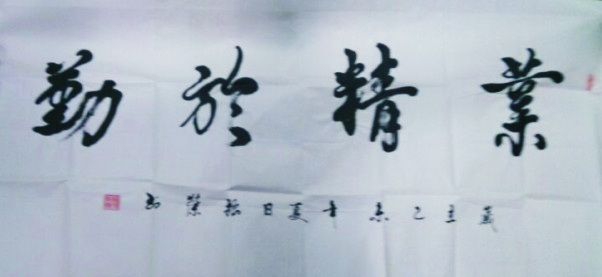 業精於勤
歲在乙未年夏日書